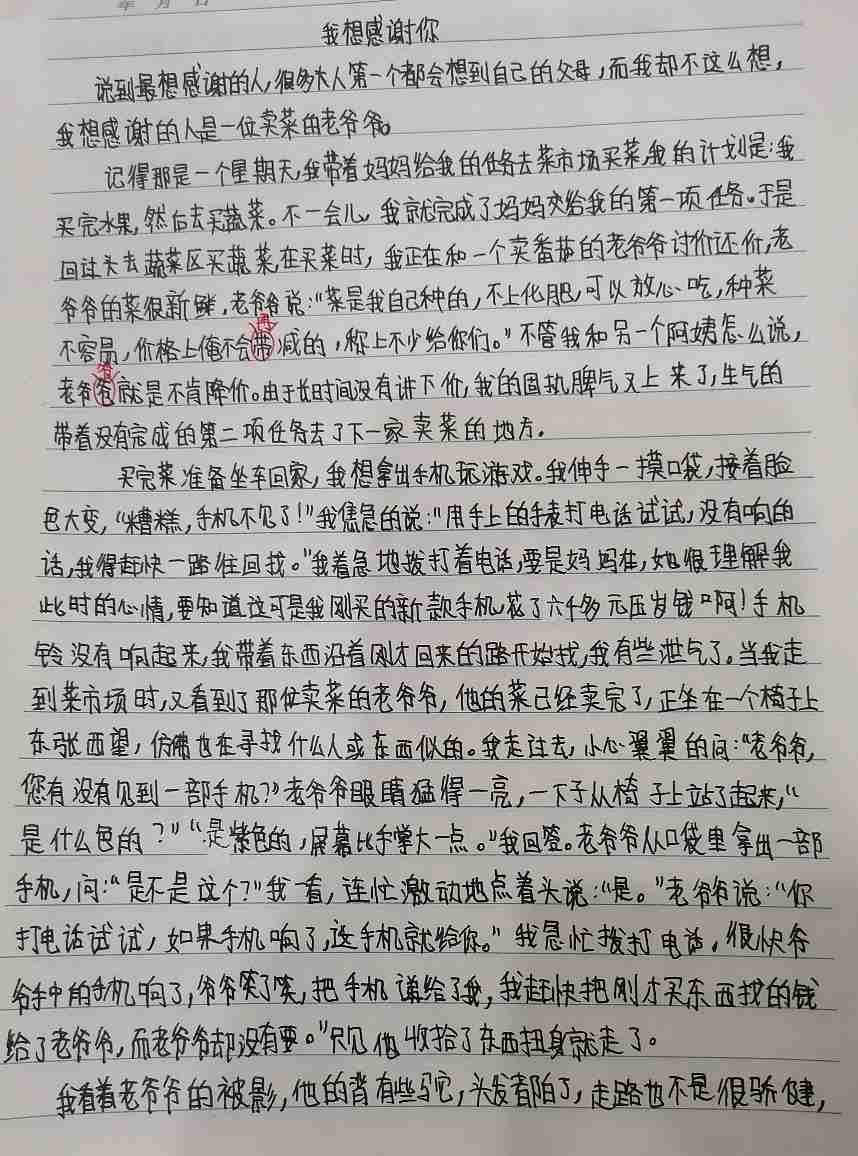 年 月 日
我想感谢你
说到最想感谢的人,很多大人第一个都会想到自己的父母,而我却不这么想,
我想感谢的人是一位卖菜的老爷爷。
记得那是一个星期天,我带着妈妈给我的任务去菜市场买菜,我的计划是:我
买完水果,然后去买蔬菜。不一会儿,我就完成了妈妈交给我的第一项任务。于是
回过头去蔬菜区买蔬菜,在买菜时,我正在和一个卖番茄的老爷爷讨价还价,老
爷爷的菜很新鲜,老爷爷说:“菜是我自己种的,不上化肥,可以放心吃,种菜
不容易,价格上俺不会带再减的,称上不少给你们。”不管我和另一个阿姨怎么说,
老爷爷就是不肯降价。由于长时间没有讲下价,我的固执脾气又上来了,生气的
带着没有完成的第二项任务去了下一家卖菜的地方.
买完菜准备坐车回家,我想拿出手机玩游戏。我伸手一摸口袋,接着脸
色大变,“糟糕,手机不见了!”我焦急的说:“用手上的手表打电话试试,没有响的
话,我得赶快一路往回找。”我着急地拨打着电话,要是妈妈在,她很理解我
此时的心情,要知道这可是我刚买的新款手机,花了六千多元压岁钱啊!手机
铃没有响起来,我带着东西沿着刚才回来的路开始找,我有些泄气了。当我走
到菜市场时,又看到了那位卖菜的老爷爷,他的菜已经卖完了,正坐在一个椅子上
东张西望,仿佛也在寻找什么人或东西似的。我走过去,小心翼翼的问:“老爷爷,
您有没有见到一部手机?”老爷爷眼睛猛得一亮,一下子从椅子上站了起来,“
是什么色的?”“是紫色的,屏幕比手掌大一点。”我回答。老爷爷从口袋里拿出一部
手机,问:“是不是这个?”我一看,连忙激动地点着头说:“是。”老爷爷说:“你
打电话试试,如果手机响了,这手机就给你。”我急忙拨打电话,很快爷
爷手中的手机响了,爷爷笑了笑,把手机递给了我,我赶快把刚才买东西找的钱
给了老爷爷,而老爷爷却没有要。”只见他收拾了东西扭身就走了。
我看着老爷爷的被影,他的背有些驼,头发都白了,走路也不是很矫健,